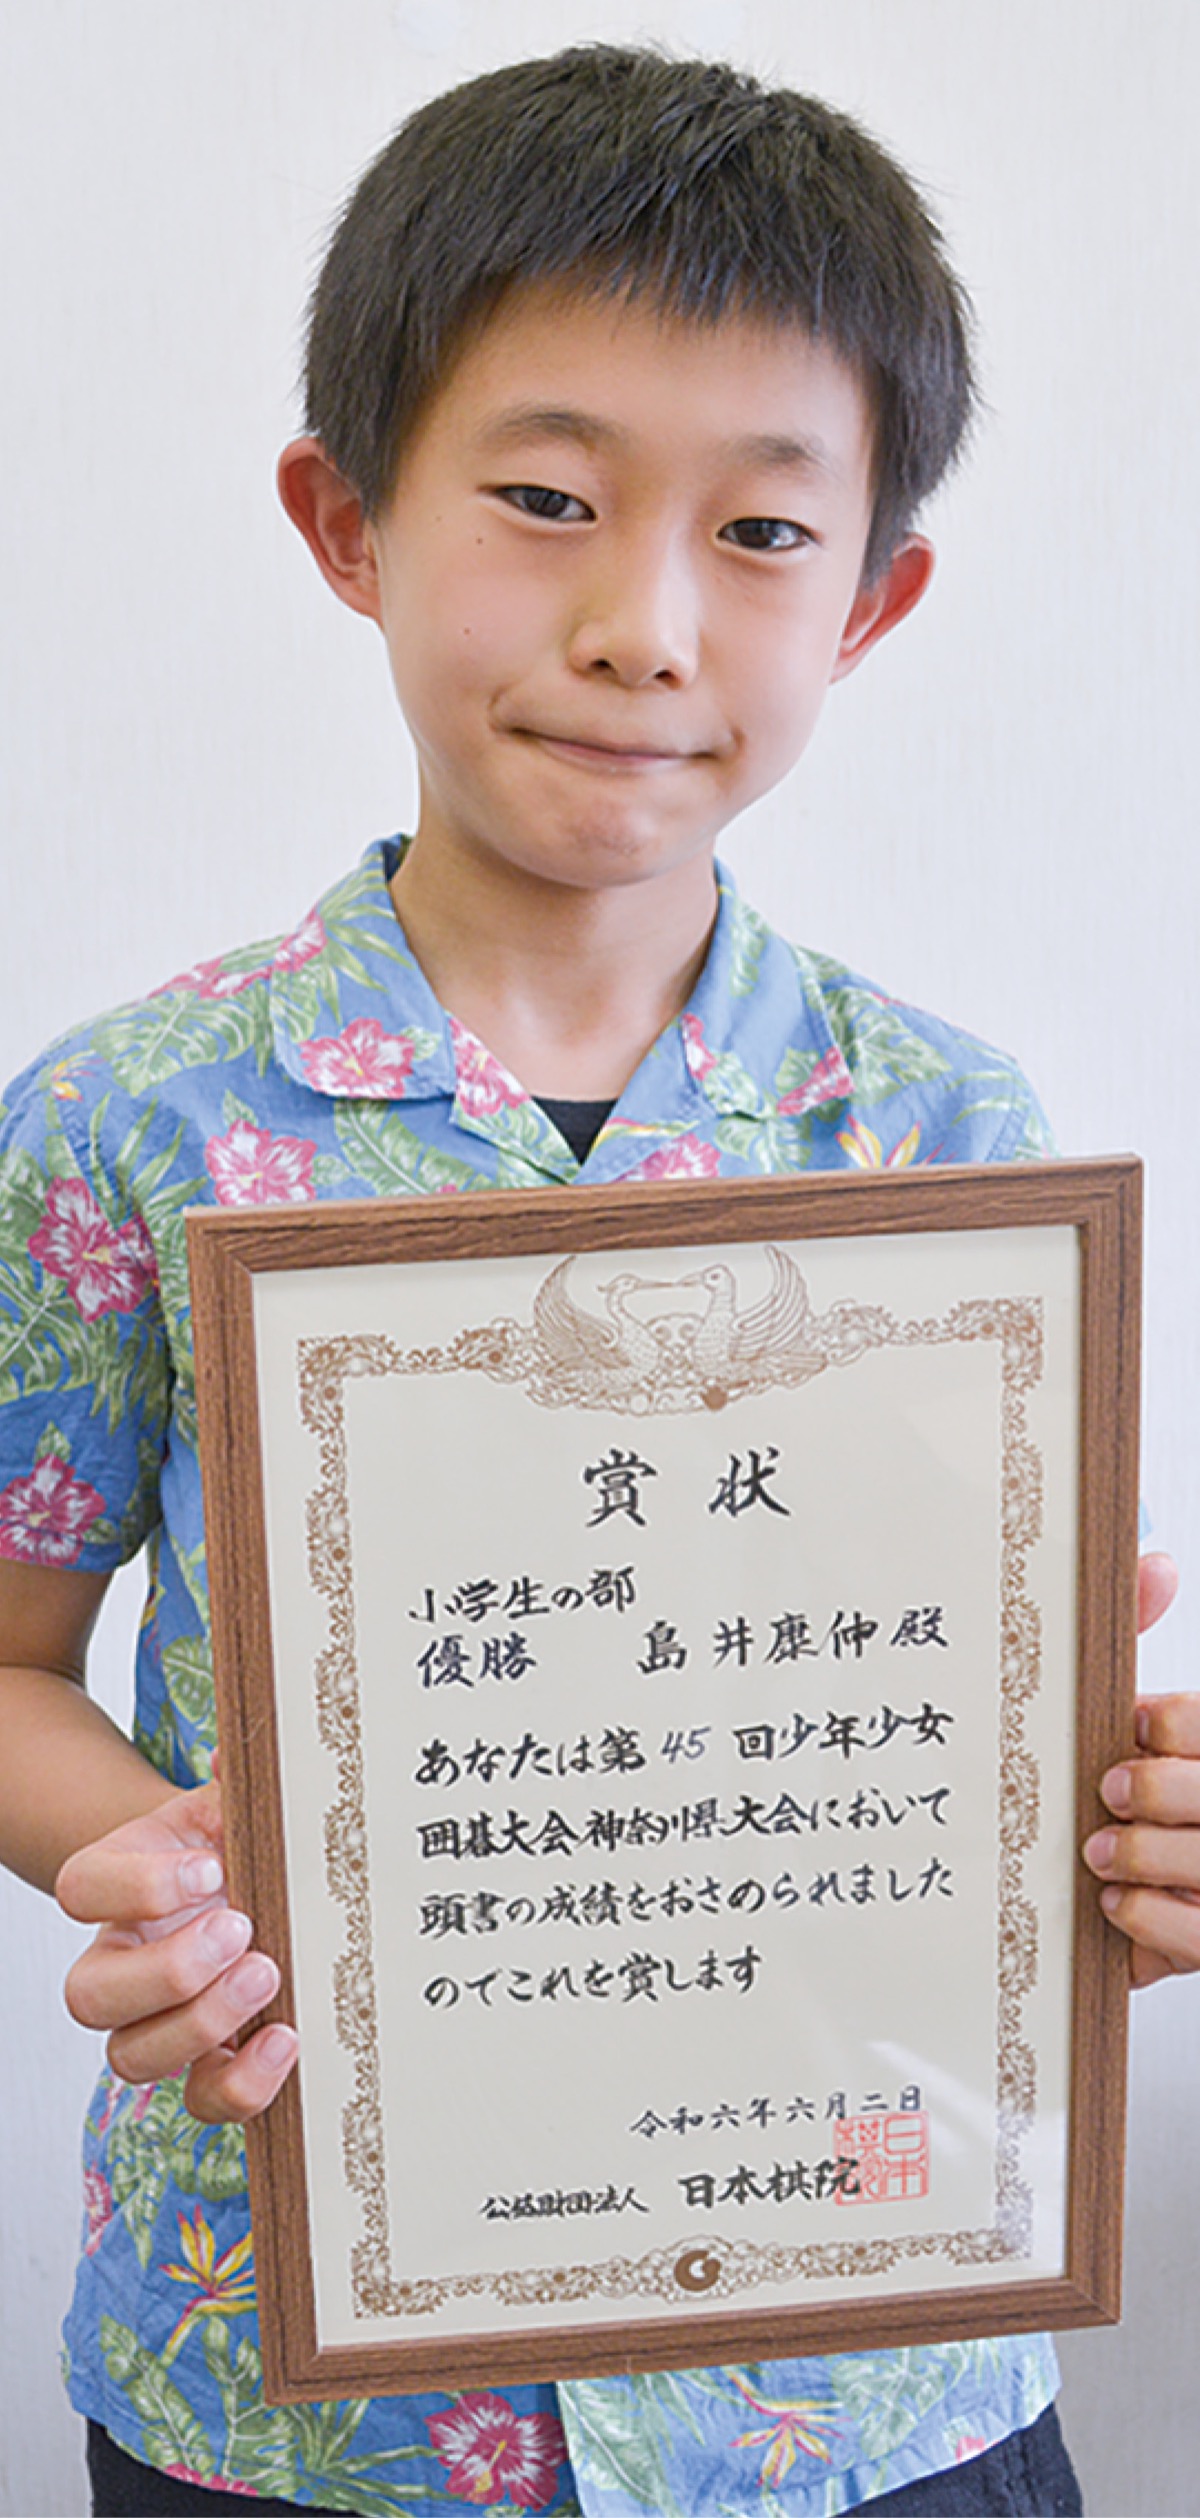 賞状
小学生の部
優勝 島井康伸殿
あなたは第45回少年少女
囲碁大会神奈川県大会において
頭書の成績をおさめられました
のでこれを賞します
令和六年六月二日
公益財団法人 日本棋院